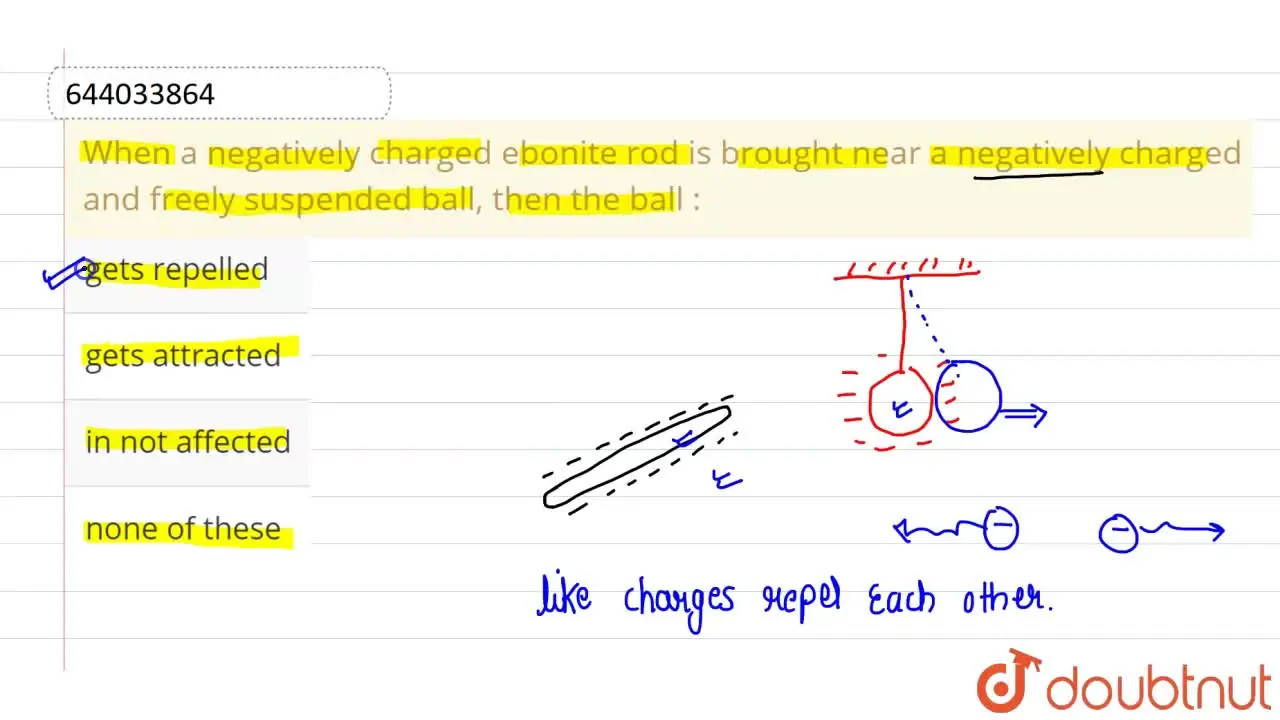 644033864
When a negatively charged ebonite rod is brought near a negatively charged
and freely suspended ball, then the ball :
gets repelled
gets attracted
in not affected
none of these
like charges repel each other.
doubtnut